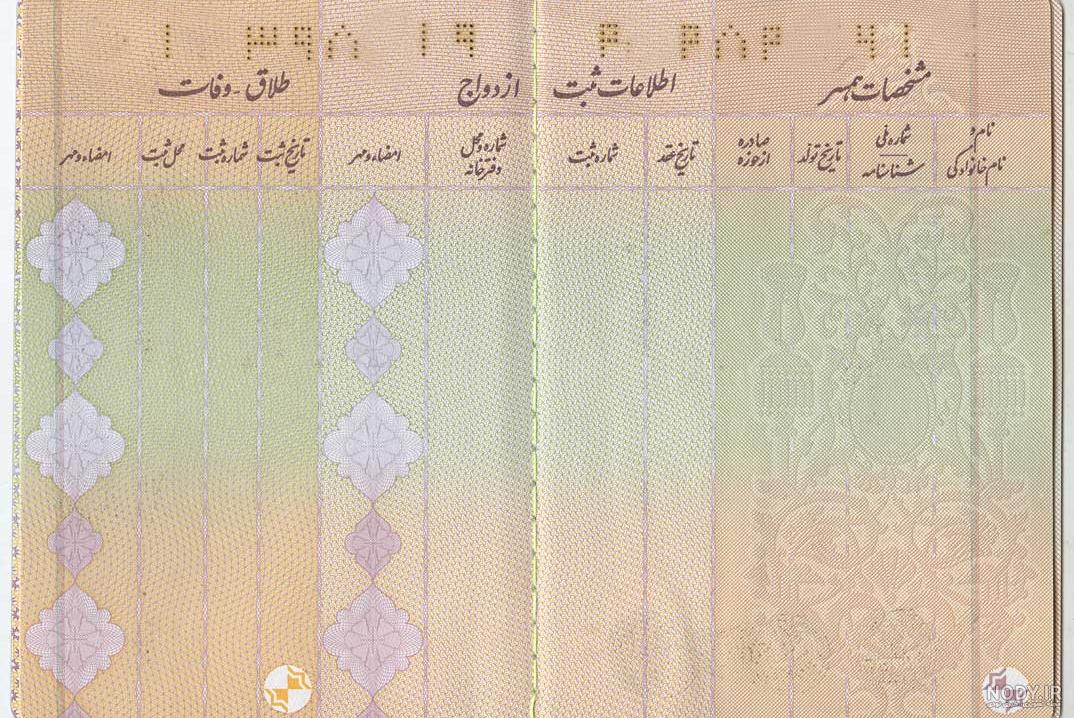 مشخصات همسر
اطلاعات ثبت ازدواج
طلاق - وفات
نام و نام خانوادگی
شماره ملی
شناسنامه
تاریخ تولد
صادره از حوزه
تاریخ عقد
شماره ثبت
شماره و محل دفترخانه
امضاء و مهر
تاریخ ثبت
شماره ثبت
محل ثبت
امضاء و مهر
NODY.IR